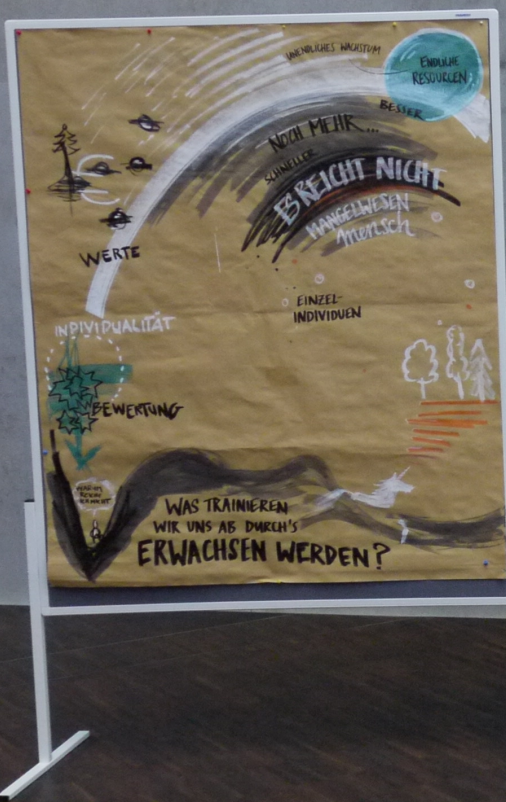 UNENDLICHES WACHSTUM
ENDLICHE
RESOURCEN
BESSER
NOCH MEHR...
SCHNELLER
ES REICHT NICHT
MANGELWESEN
mensch
WERTE
EINZEL-
INDIVIDUEN
INDIVIDUALITÄT
BEWERTUNG
WAS TRAINIEREN
WIR UNS AB DURCH'S
ERWACHSEN WERDEN?